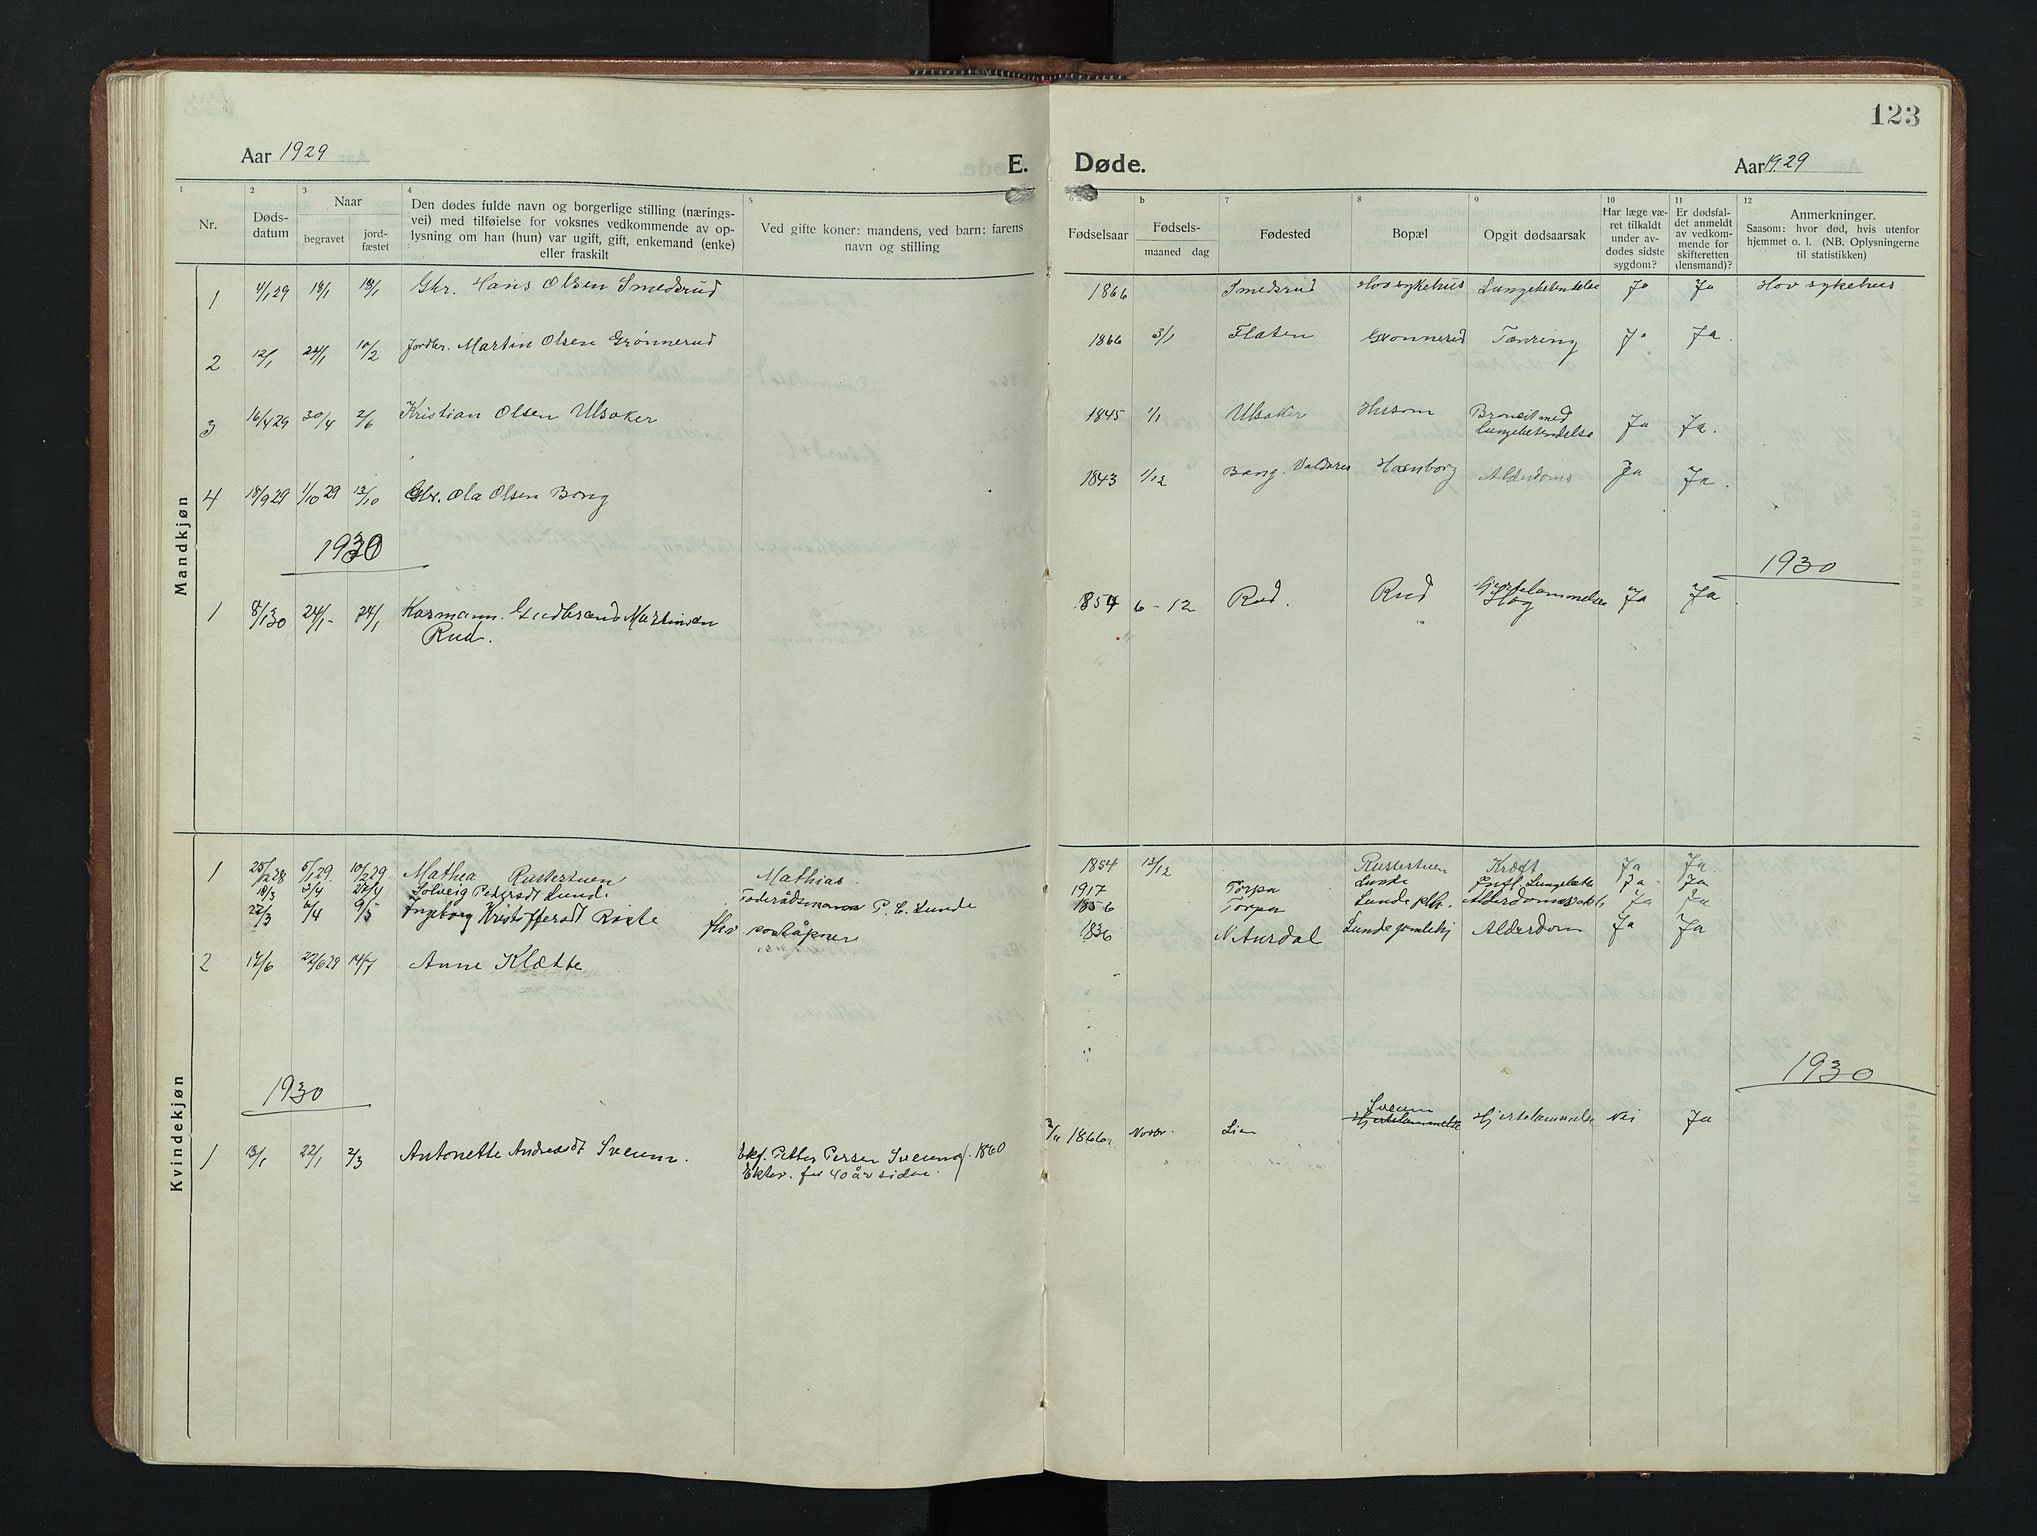 123
Aar 1929
E.
Døde.
Aar 1929
1
2
3
4
5
6
b
7
8
9
10
11
12
Nr.
Døds-
datum
Naar
begravet
jord-
fæstet
Den dødes fulde navn og borgerlige stilling (nærings-
vei) med tilføielse for voksnes vedkommende av op-
lysning om han (hun) var ugift, gift, enkemand (enke)
eller fraskilt
Ved gifte koner: mandens, ved barn: farens
navn og stilling
Fødselsaar
Fødsels-
maaned dag
Fødested
Bopæl
Opgit dødsaarsak
Har læge væ-
ret tilkaldt
under av-
dødes sidste
sygdom?
Er dødsfal-
det anmeldt
av vedkom-
mende for
skifteretten
(lensmand)?
Anmerkninger.
Saasom: hvor død, hvis utenfor
hjemmet o. l. (NB. Oplysningerne
til statistikken)
Mandkjøn
1 4/1 29 18/1 18/1 Gbr. Hans Olsen Smedsrud 1866 Smedsrud Hov sykehus Lungebetendelse Ja Ja Hov sykehus
2 12/1 24/1 10/2 Jordbr. Martin Olsen Grønnerud 1866 3/1 Flaten Grønnerud Tæring Ja Ja.
3 16/4 29 30/4 2/6 Kristian Olsen Ulsaker 1845 1/1 Ulsaker Husom Broncit med
Lungebetendelse Ja Ja.
4 18/9 29 1/10 29 13/10 Gbr. Ola Olsen Bang 1843 1/12 Bang. Valdres Alderdoms Ja Ja.
1930
1930
1 8/1 30 24/1 - 24/1 Kaarmann. Gudbrand Martinsen
Rud. 1854 6-12 Rud. Rud Hjertelammelse
Slag Ja Ja.
Kvindekjøn
1 25/12 28 5/1 29. 10/2 29 Mathea Rustestuen Mathias. 1854 13/12 Rustestuen Kræft Ja Ja
18/3 3/4 24/4 Solveig Pedersdt Lund. Føderådsmann P. C. Lunde 1917 Torpa Lunde Infl. Lungebet. Ja Ja
22/3 4/4 9/5 Ingeborg Kristoffersdt Røste fhv poståpner 1856 Torpa Lunde Ja Ja
2 14/6 22/6 29 14/7 Anne Klætte 1836 N Aurdal Lunde gamlehj Alderdom Ja Ja
1930
1930
1 13/1 22/1 2/3 Antonette Andreasdt Sveum. Ekf. Petter Persen Sveum f. 1860
Ekter. for 40 år siden. 3/11 1866 Novbr. Lien Sveum
Hjertelammelse Hjertelammelse Nei Ja